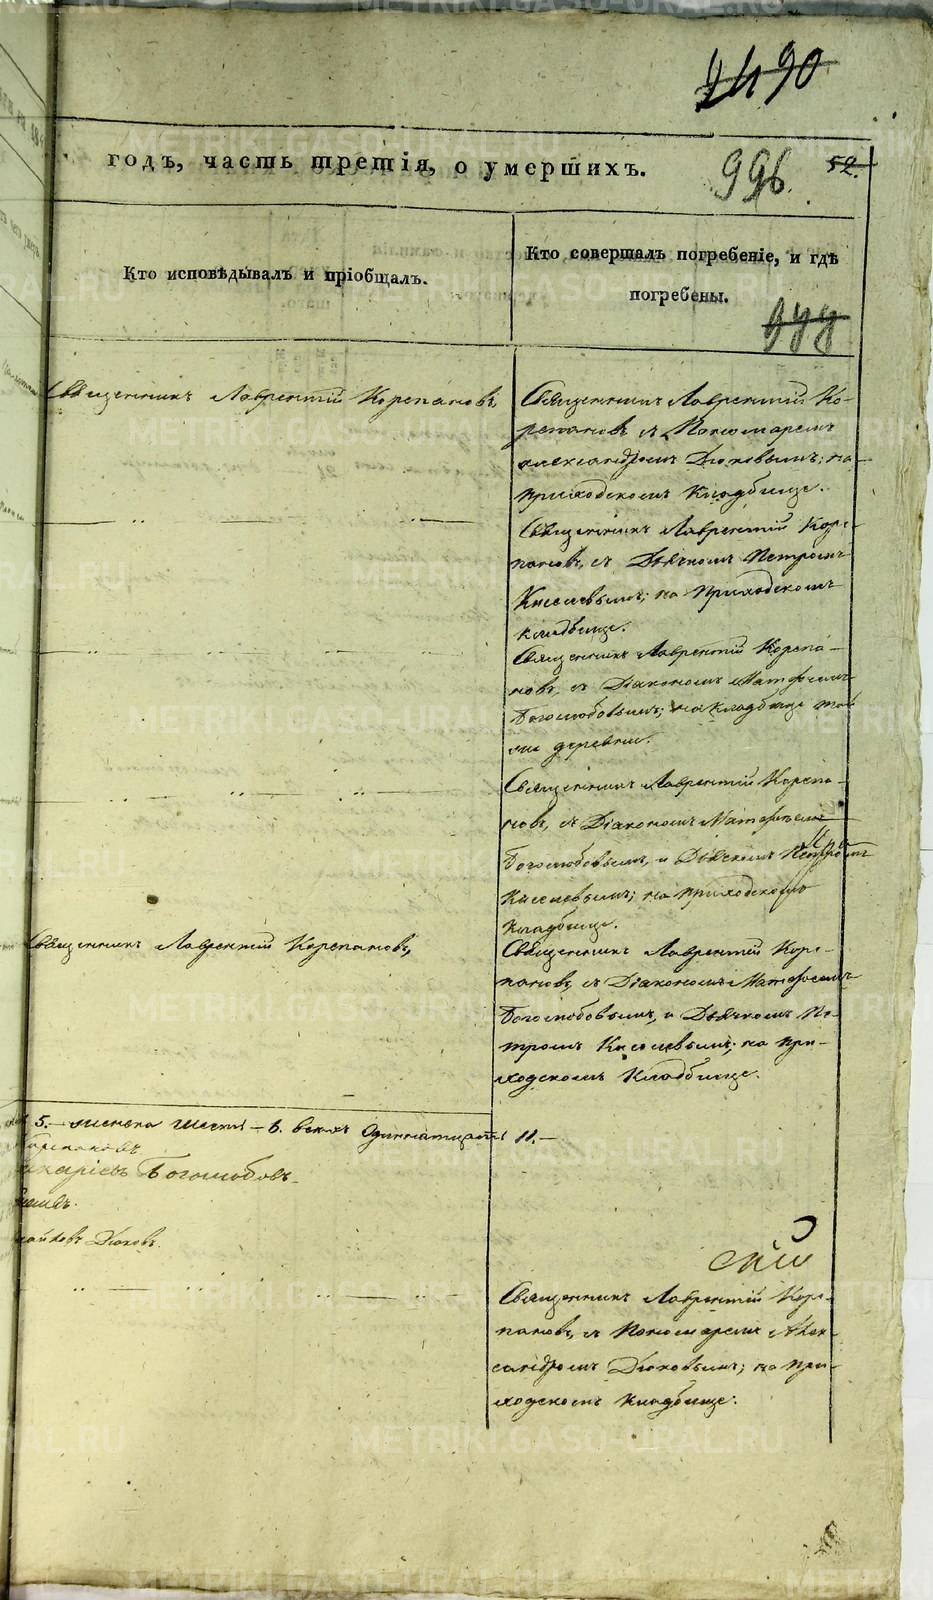 90
годъ, часть третія, о умершихъ.
996.
52.
Кто исповѣдывалъ и пріобщалъ.
Кто совершалъ погребеніе, и гдѣ
погребены.
Священникъ Лаврентій Корепановъ,
Священникъ Лаврентій Ко-
репановъ, съ Пономаремъ
Александромъ Дюковымъ; на
приходскомъ кладбище.
Священникъ Лаврентій Коре-
пановъ, съ Дьячкомъ Петромъ
Киселевымъ; на приходскомъ
кладбище.
Священникъ Лаврентій Корепа-
новъ, съ Діакономъ Матфеемъ
Боголюбовымъ; на кладбище той
же деревни.
Священникъ Лаврентій Корепа-
новъ, съ Діакономъ Матфеемъ
Боголюбовымъ, и Дьячкомъ Петромъ
Киселевымъ; на приходскомъ
кладбище.
Священникъ Лаврентій Корепановъ,
Священникъ Лаврентій Коре-
пановъ, съ Діакономъ Матфеемъ
Боголюбовымъ, и Дьячкомъ Пе-
тромъ Киселевымъ; на при-
ходскомъ кладбище.
5.- женска 6. всехъ Одиннатцать 11.-
Корепановъ
Боголюбовъ
Дюковъ.
Священникъ Лаврентій Коре-
пановъ, съ Пономаремъ Алек-
сандромъ Дюковымъ; на при-
ходскомъ кладбище.
METRIKI.GASO-URAL.RU